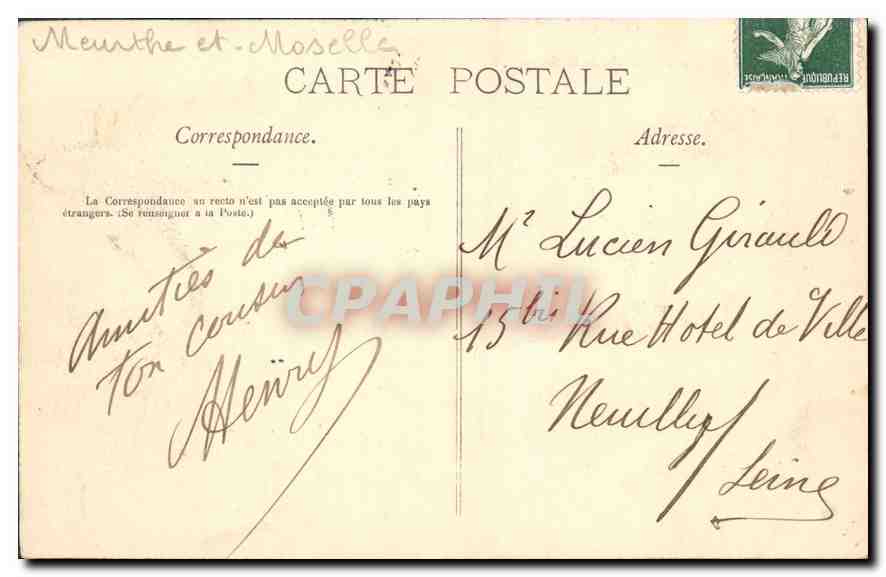 Meurthe et-Moselle
CARTE POSTALE
REPUBLIQUE
FRANÇAISE
Correspondance.
Adresse.
La Correspondance au recto n'est pas acceptée par tous les pays
étrangers. (Se renseigner a la Poste.)
Amitiés de
ton cousin
Henry
Mr Lucien Girault
15 bis Rue Hotel de Ville
Neuilly s/
Seine
CPAPHIL